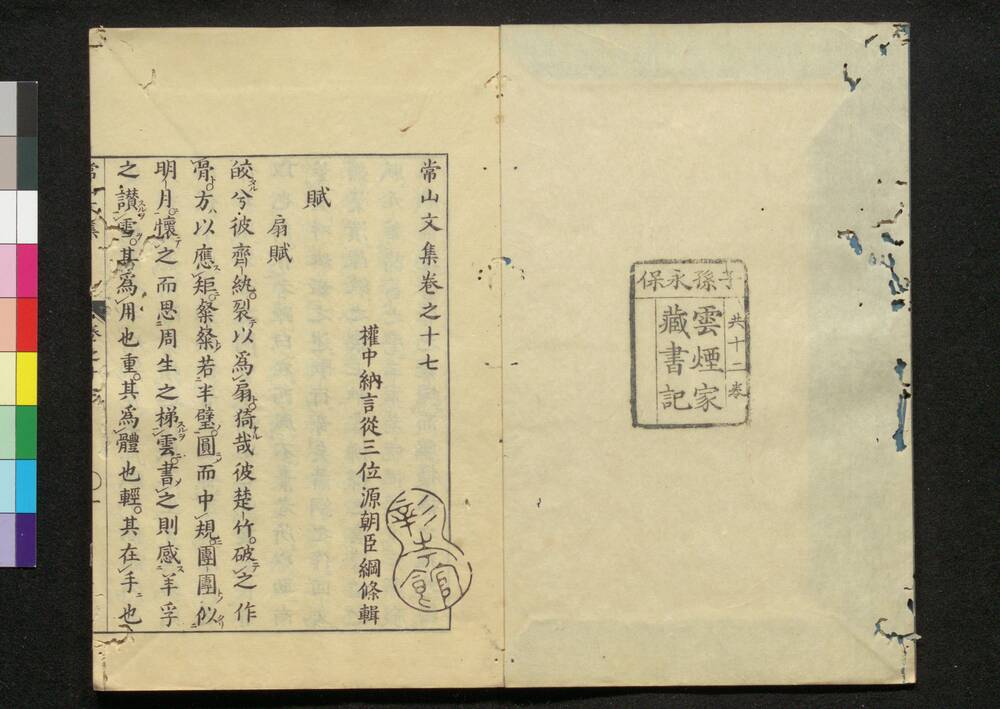 子孫永保
共十二卷
雲煙家
藏書記
常山文集卷之十七
權中納言從三位源朝臣綱條輯
彰考館
賦
扇賦
皎兮彼齊紈裂以爲扇猗哉彼楚竹破之作
骨方以應矩粲粲若半璧圓而中規團團似
明月懷之而思周生之梯雲書之則感羊孚
之讃雪其爲用也重其爲體也輕其在手也